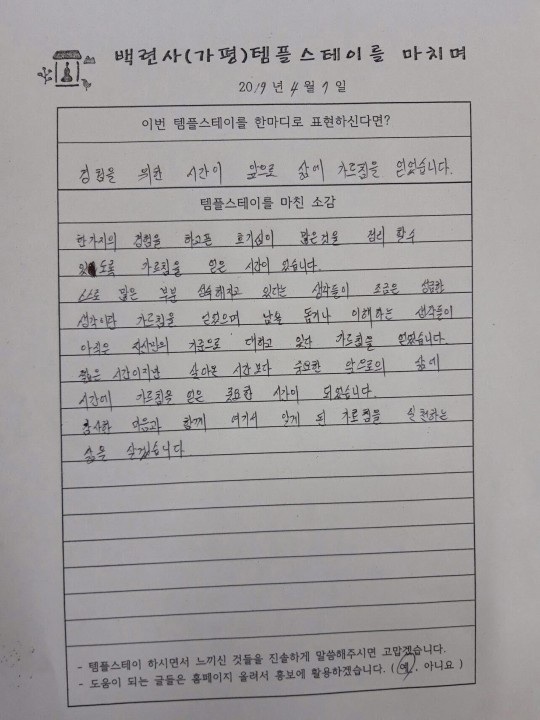 백련사(가평)템플스테이를 마치며
2019 년 4 월 7 일
이번 템플스테이를 한마디로 표현하신다면?
경험을 위한 시간이 앞으로 삶에 가르침을 얻었습니다.
템플스테이를 마친 소감
한가지의 경험을 하고픈 호기심이 많은것을 정리 할수
있도록 가르침을 얻은 시간이 있습니다.
스스로 많은 부분 성숙해지고 있다는 생각들이 조금은 섣급한
생각이란 가르침을 얻었으며 남을 돕거나 이해하는 생각들이
아직은 자신만의 기준으로 대하고 있단 가르침을 얻었습니다.
짧은 시간이지만 살아온 시간보다 중요한 앞으로의 삶에
시간에 가르침을 얻은 중요한 시간이 되었습니다.
감사한 마음과 함께 여기서 알게 된 가르침을 실천하는
삶을 살겠습니다
- 템플스테이 하시면서 느끼신 것들을 진솔하게 말씀해주시면 고맙겠습니다.
- 도움이 되는 글들은 홈페이지 올려서 홍보에 활용하겠습니다. ( 예 , 아니요 )